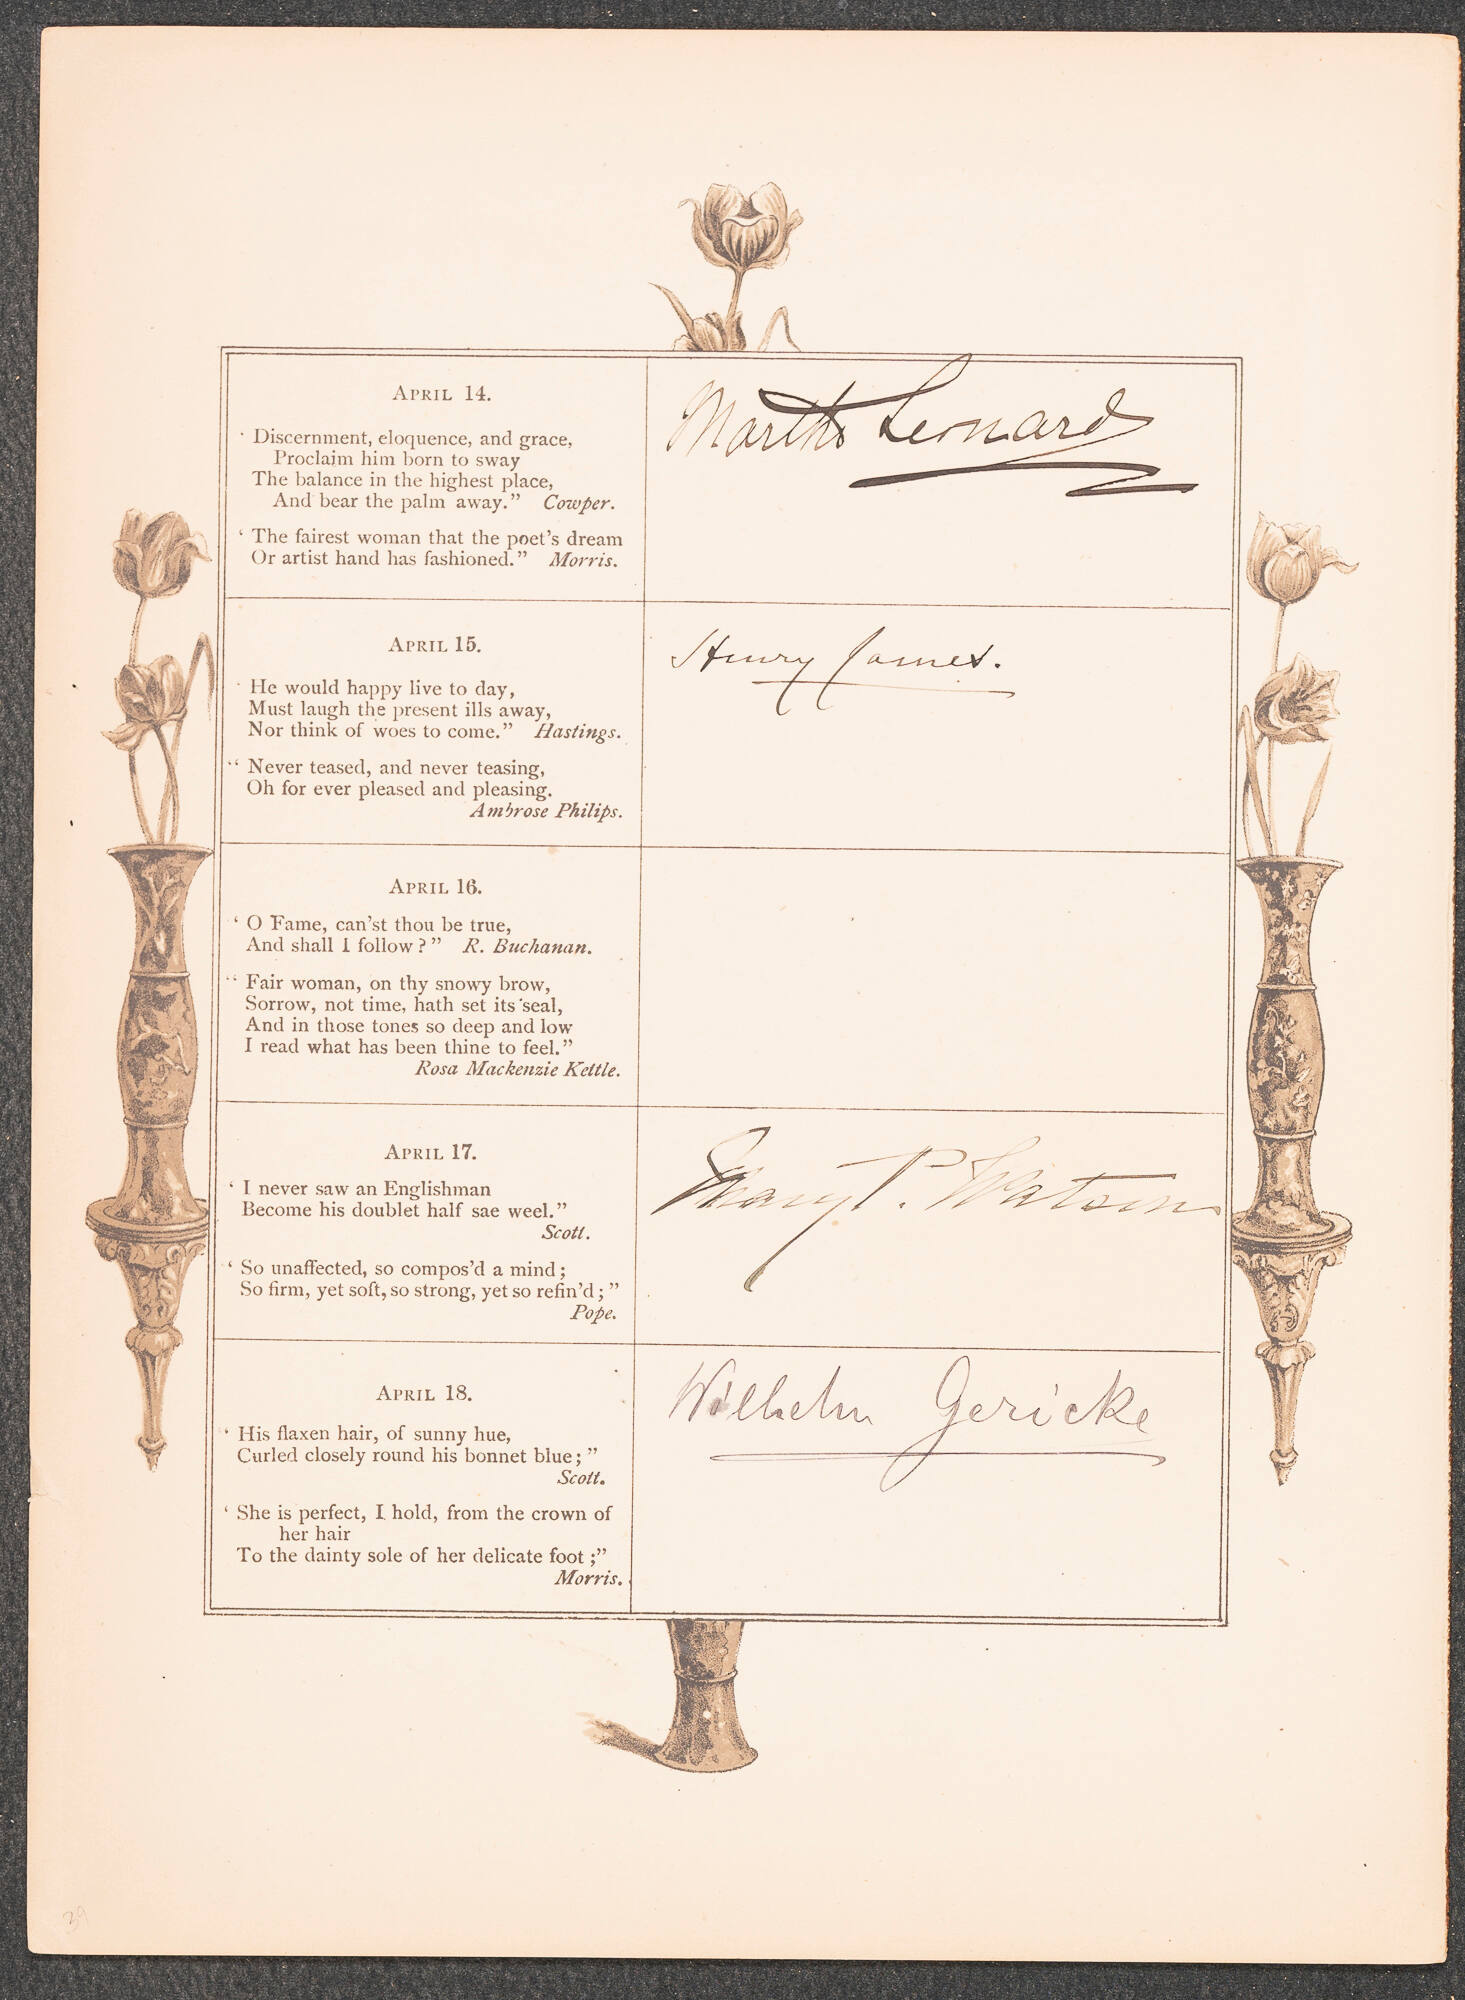 APRIL 14.
‘ Discernment, eloquence, and grace,
Proclaim him born to sway
The balance in the highest place,
And bear the palm away.” Cowper.
‘ The fairest woman that the poet's dream
Or artist hand has fashioned.” Morris.
Martha Leonard
APRIL 15.
He would happy live to day,
Must laugh the present ills away,
Nor think of woes to come.” Hastings.
“ Never teased, and never teasing,
Oh for ever pleased and pleasing.
Ambrose Philips.
Henry James.
APRIL 16.
‘ O Fame, can'st thou be true,
And shall I follow?” R. Buchanan.
“ Fair woman, on thy snowy brow,
Sorrow, not time, hath set its seal,
And in those tones so deep and low
I read what has been thine to feel.”
Rosa Mackenzie Kettle.
APRIL 17.
‘ I never saw an Englishman
Become his doublet half sae weel.”
Scott.
‘ So unaffected, so compos'd a mind;
So firm, yet soft, so strong, yet so refin'd;”
Pope.
Mary P. Watson
APRIL 18.
‘ His flaxen hair, of sunny hue,
Curled closely round his bonnet blue;”
Scott.
‘ She is perfect, I hold, from the crown of
her hair
To the dainty sole of her delicate foot;”
Morris.
Wilhelm Gericke
39